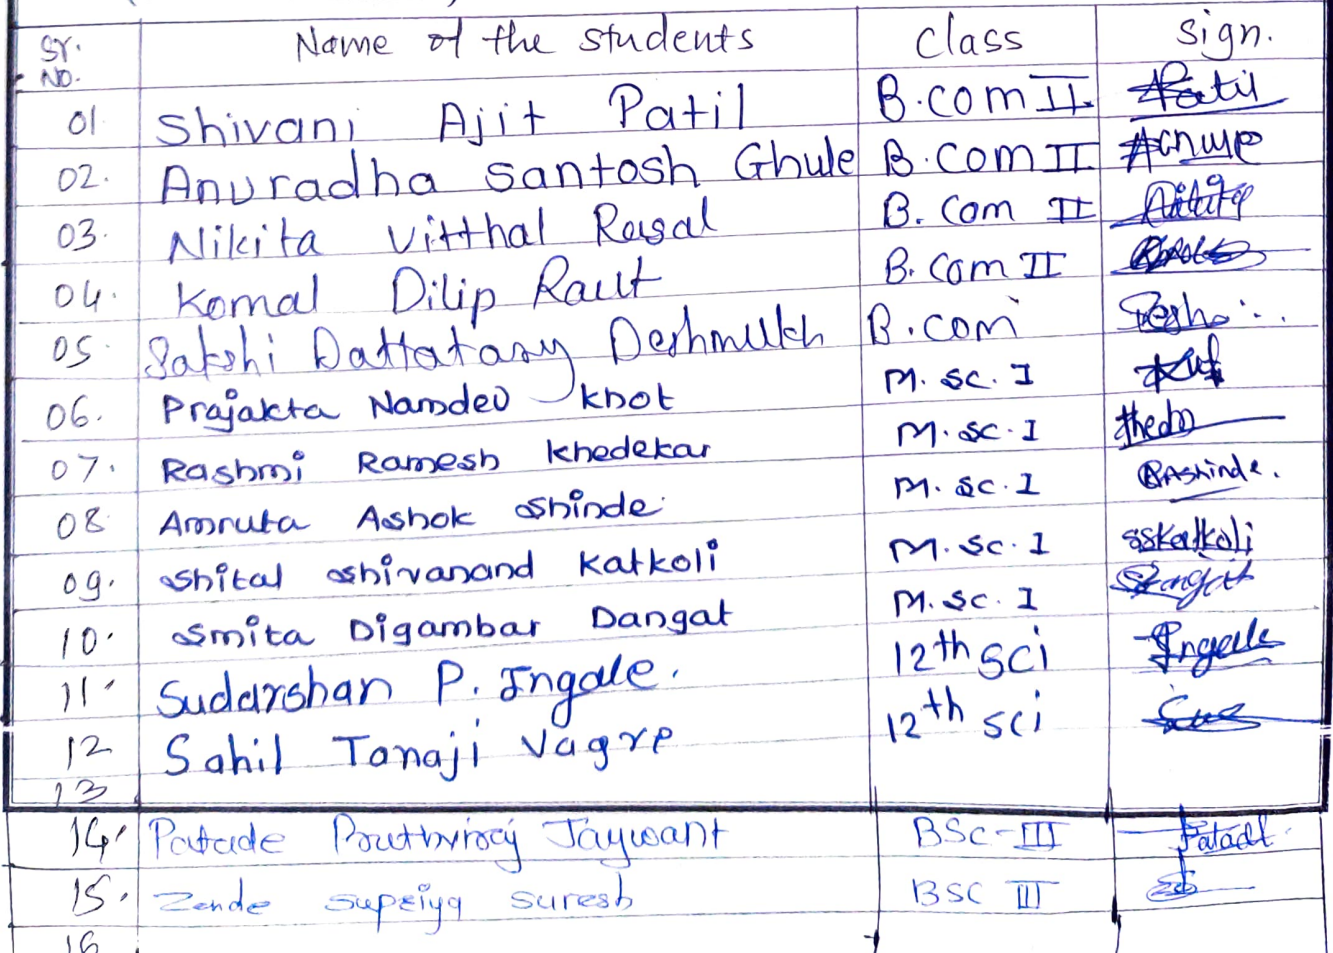 Sr. No. Name of the students Class Sign.
01 Shivani Ajit Patil B.com II Patil
02. Anuradha Santosh Ghule B.com II
03. Nikita Vitthal Rasal B. Com II
04. Komal Dilip Raut B. Com II
05. Sakshi Dattatary Deshmukh B.com
06. Prajakta Namdeo Khot M.sc. I
07. Rashmi Ramesh Khedekar M.sc. I
08 Amruta Ashok Shinde M.sc. I RAShinde.
09. Shital Shivanand Katkoli M.sc. I sskatkoli
10. Smita Digambar Dangat M.sc. I
11. Sudarshan P. Ingale. 12th sci Ingale
12 Sahil Tanaji Vagre 12th sci
13
14. Patade Pruthviraj Jaywant BSc-III Patade
15. Zende supriya suresh BSC III
16